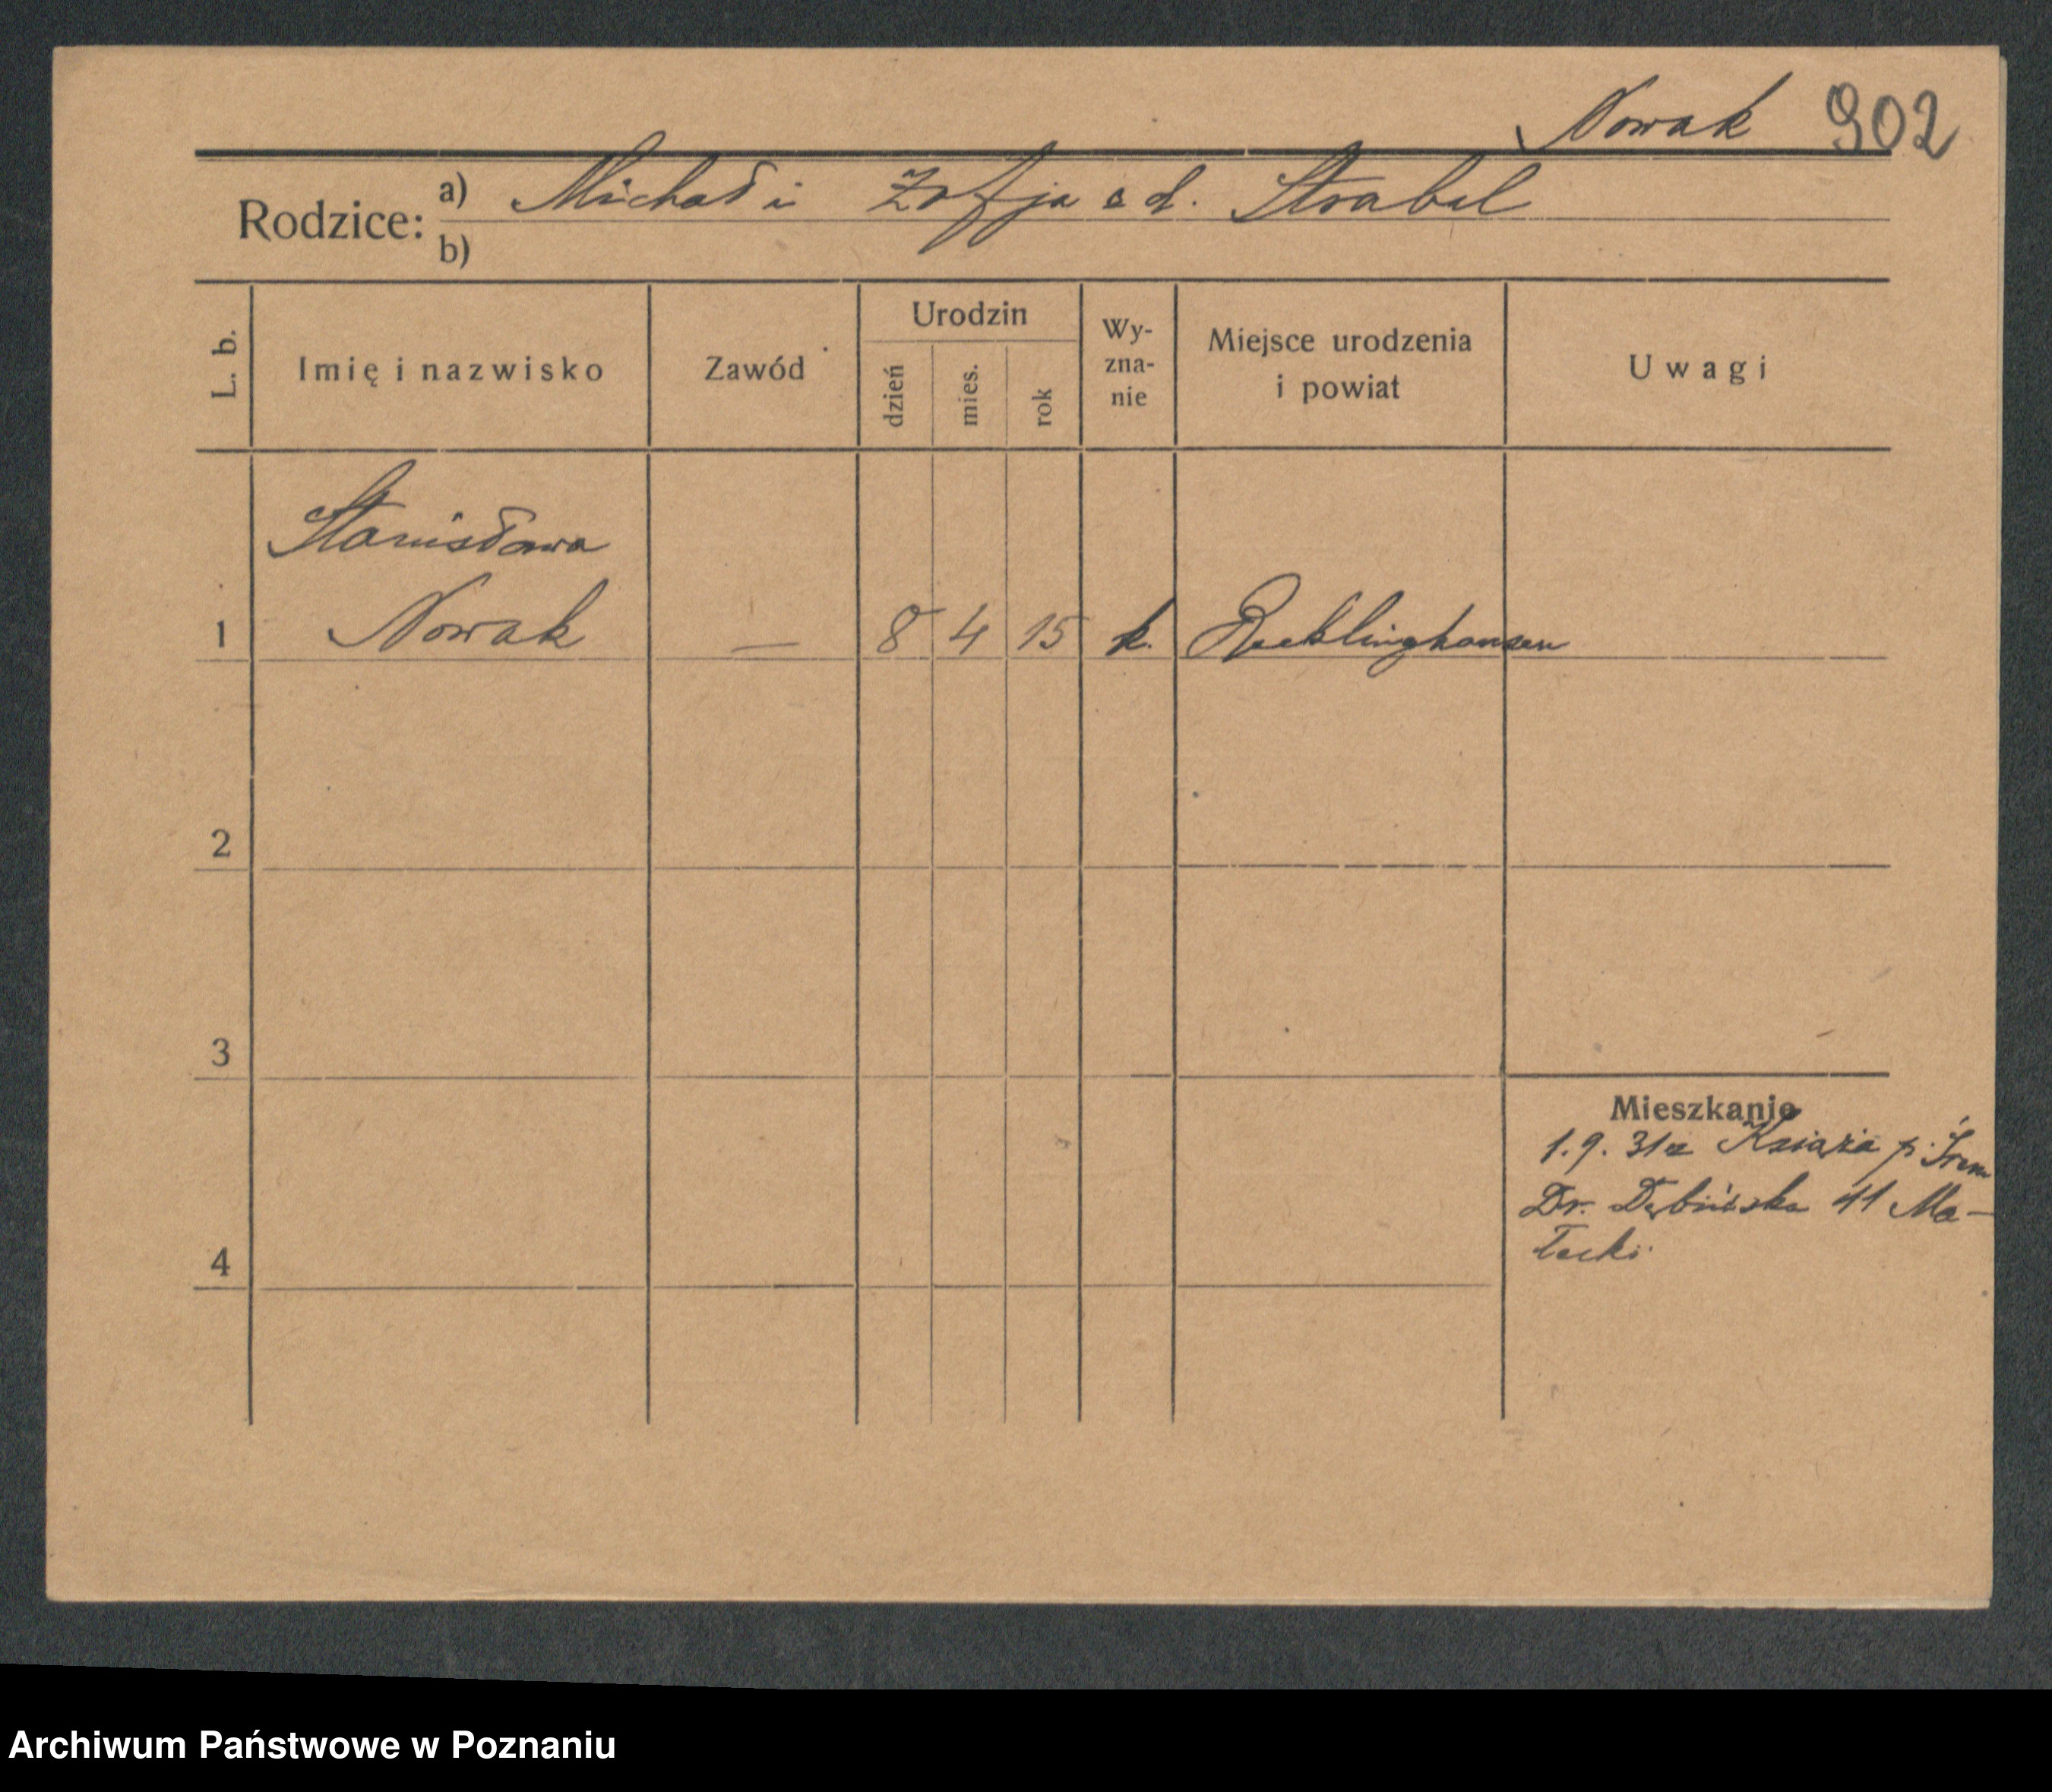 Nowak 902
Rodzice: a) Michał i Zofja z d. Strabel
b)
L. b.
Imię i nazwisko
Zawód
Urodzin
dzień
mies.
rok
Wy-
zna-
nie
Miejsce urodzenia
i powiat
Uwagi
Stanisława
1 Nowak — 8 4 15 k. Recklinghausen
2
3
4
Mieszkanie
1.9.31 z Książa p. Śrem
Dr. Dębińska 41 Ma-
łecki
Archiwum Państwowe w Poznaniu